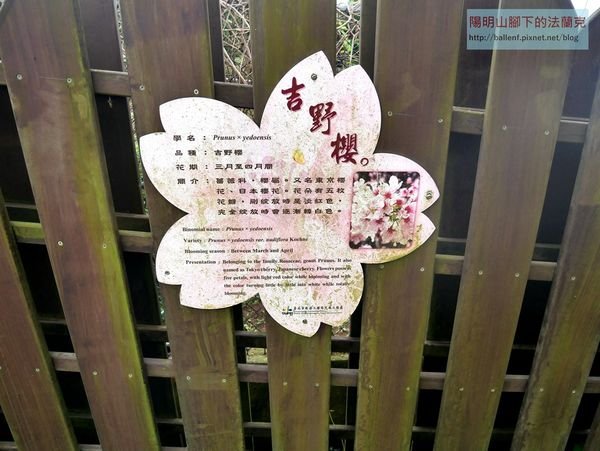 陽明山腳下的法蘭克
http://ballenf.pixnet.net/blog
吉野櫻。
學名：Prunus × yedoensis
品種：吉野櫻
花期：三月至四月間
簡介：薔薇科，櫻屬。又名東京櫻
花、日本櫻花。花朵有五枚
花瓣，剛綻放時是淡紅色，
完全綻放時會逐漸轉白色。
Binomial name：Prunus × yedoensis
Variety：Prunus × yedoensis var. nudiflora Koehne
Blooming season：Between March and April
Presentation：Belonging to the family Rosaceae, genus Prunus. It also
named as Tokyo cherry, Japanese cherry. Flowers possess
five petals, with light red color while blooming and with
the color turning little by little into white while totally
blooming.